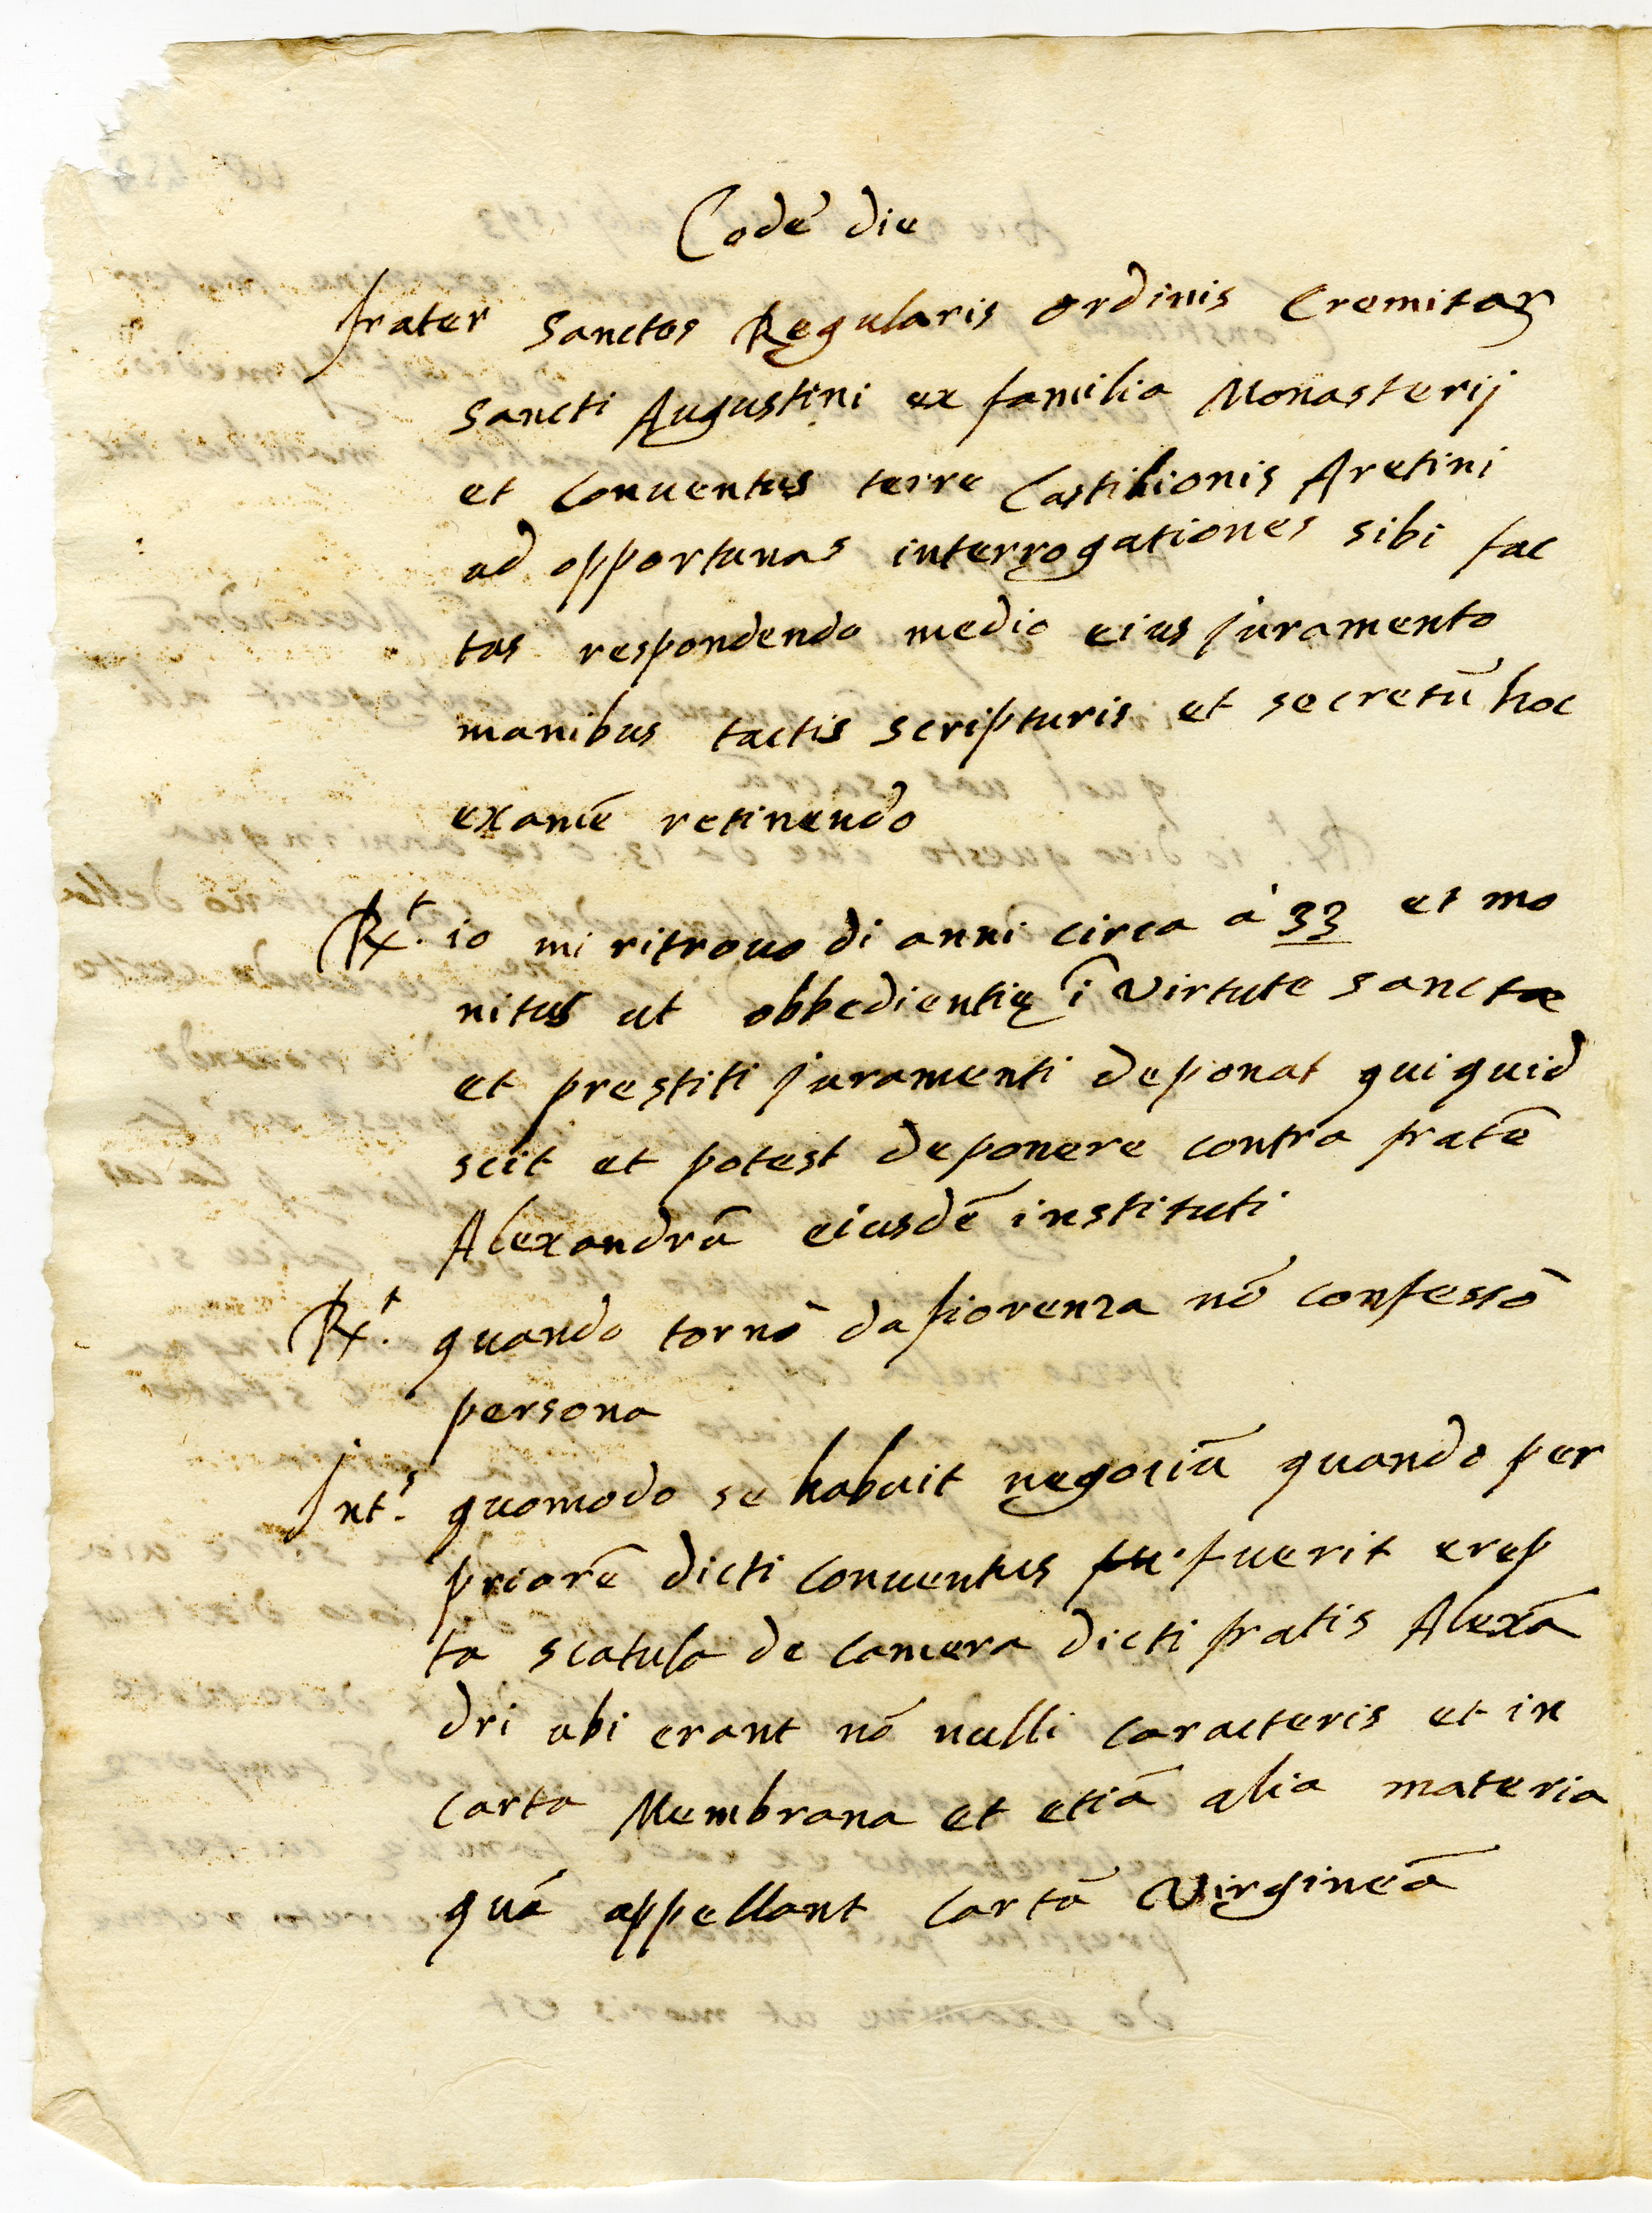 Eodē die
frater Sanctes Regularis ordinis Eremitaꝝ
Sancti Augustini ex familia Monasterij
et Conuentus terre Castilionis Aretini
ad opportunas interrogationes sibi fac
tas respondendo medio eius juramento
manibus tactis scripturis et secretū hoc
examē retinendo
Rx.t io mi ritrouo di anni circa à 33 et mo
nitus ut obbedientię ī virtute sanctae
et prestiti juramenti deponat quiquid
scit et potest deponere contra fratē
Alexandrū eiusdē instituti
Rx.t quando tornò da fiorenza nō confessò
persona
Int.s quomodo se habuit negociū quando per
priorē dicti conuentus fu. fuerit erep
ta scatula de camera dicti fratis Alexā
dri ubi erant nō nulli caracteris et in
carta Membrana et etiā alia materia
quā appellant cartā Virgineā